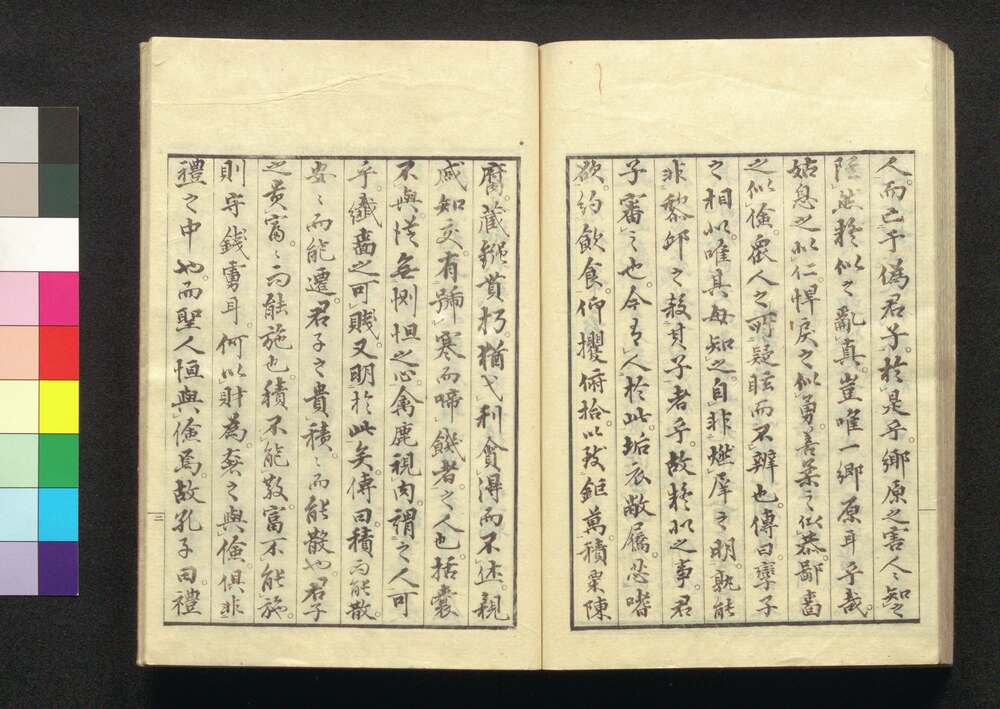 人而已乎偽君子於是乎鄉原之害人人知之
陋然於似之亂真豈唯一鄉原耳乎哉
姑息之似仁悍戾之似勇善柔之似恭鄙嗇
之似儉眾人之所疑眩而不辨也傳曰孿子
之相似唯其母知之自非燃犀之明孰能
非黎邱之殺其子者乎故於似之事君
子審之也今有人於此垢衣敝屩惡嗜
欲約飲食仰攫俯拾以致鉅萬積粟陳
腐藏鏹貫朽猶弋利貪得而不述親
戚知交有號寒而啼饑者之人也括囊
不與漠無惻怛之心禽鹿視肉謂之人可
乎纖嗇之可賤又明於此矣傳曰積而能散
安安而能遷君子之貴積積而能散也君子
之貴富富而能施也積不能散富不能施
則守錢虜耳何以財為奢之與儉俱非
禮之中也而聖人恒與儉焉故孔子曰禮
三